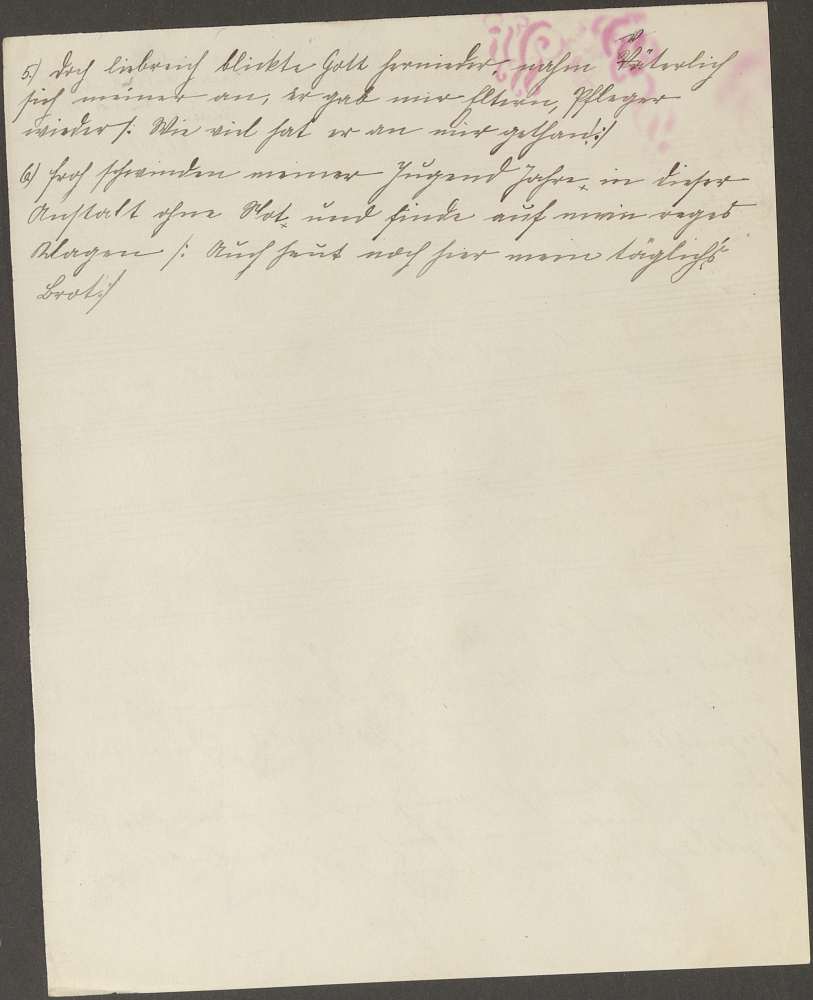 5.) Doch liebreich blickte Gott hernieder, nahm väterlich
sich meiner an, Er gab mir Eltern, Pfleger
wieder /: Wie viel hat er an mir gethan! :/
6.) Froh schwinden meiner Jugend Jahre, in dieser
Anstalt ohne Not, und finde auf mein reges
Klagen /: Auch heut noch hier mein täglich's
Brot :/